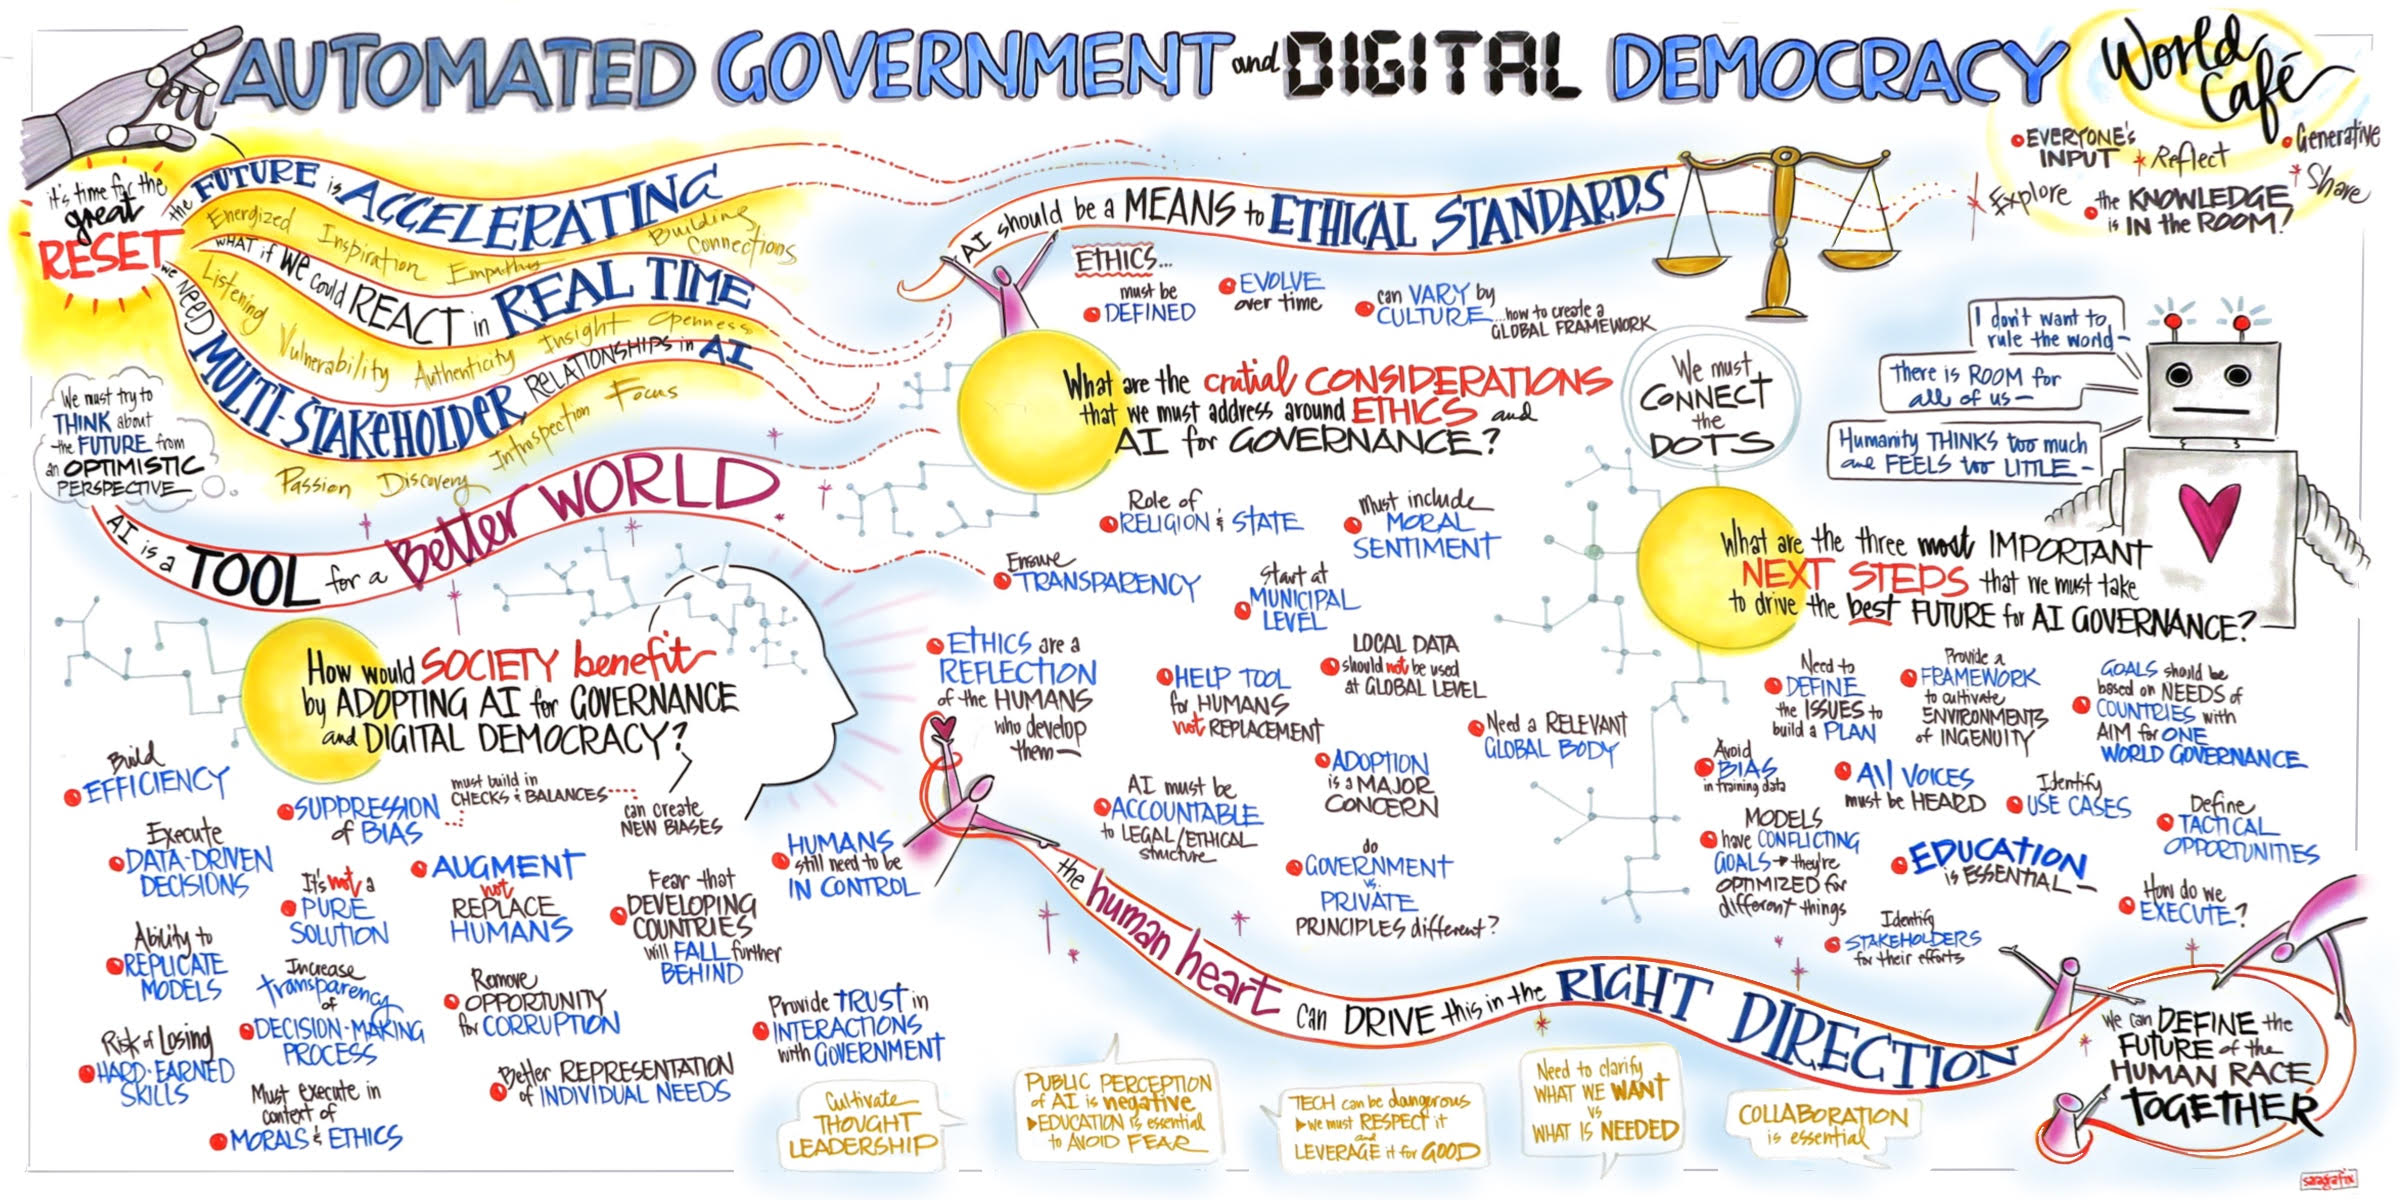 AUTOMATED GOVERNMENT and DIGITAL DEMOCRACY
World
Café
EVERYONE'S
INPUT
Reflect
Generative
Explore
Share
the KNOWLEDGE
is IN the ROOM!
it's time for the
great
RESET
the FUTURE is ACCELERATING
Energized
Inspiration
Empathy
Building
Connections
WHAT if WE could REACT in REAL TIME
Listening
Vulnerability
Authenticity
Insight
Openness
WE NEED MULTI-STAKEHOLDER RELATIONSHIPS in AI
Passion
Discovery
Introspection
Focus
We must try to
THINK about
the FUTURE from
an OPTIMISTIC
PERSPECTIVE
AI is a TOOL for a Better WORLD.
How would SOCIETY benefit
by ADOPTING AI for GOVERNANCE
and DIGITAL DEMOCRACY?
Build
EFFICIENCY
SUPPRESSION
of BIAS
must build in
CHECKS & BALANCES
can create
NEW BIASES
Execute
DATA-DRIVEN
DECISIONS
It's not a
PURE
SOLUTION
AUGMENT
not
REPLACE
HUMANS
Fear that
DEVELOPING
COUNTRIES
will FALL further
BEHIND
HUMANS
still need to be
IN CONTROL
Ability to
REPLICATE
MODELS
Increase
transparency
of
DECISION-MAKING
PROCESS
Remove
OPPORTUNITY
for CORRUPTION
Provide TRUST in
INTERACTIONS
with GOVERNMENT
Risk of Losing
HARD-EARNED
SKILLS
Must execute in
context of
MORALS & ETHICS
Better REPRESENTATION
of INDIVIDUAL NEEDS
AI should be a MEANS to ETHICAL STANDARDS
ETHICS...
must be
DEFINED
EVOLVE
over time
can VARY by
CULTURE
...how to create a
GLOBAL FRAMEWORK
What are the crutial CONSIDERATIONS
that we must address around ETHICS and
AI for GOVERNANCE?
Role of
RELIGION & STATE
Must include
MORAL
SENTIMENT
Ensure
TRANSPARENCY
Start at
MUNICIPAL
LEVEL
ETHICS are a
REFLECTION
of the HUMANS
who develop
them—
HELP TOOL
for HUMANS
not REPLACEMENT
LOCAL DATA
should not be used
at GLOBAL LEVEL
Need a RELEVANT
GLOBAL BODY
AI must be
ACCOUNTABLE
to LEGAL/ETHICAL
structure
ADOPTION
is a MAJOR
CONCERN
do
GOVERNMENT
vs.
PRIVATE
PRINCIPLES different?
We must
CONNECT
the
DOTS
I don't want to
rule the world—
There is ROOM for
all of us—
Humanity THINKS too much
and FEELS too LITTLE—
What are the three most IMPORTANT
NEXT STEPS that we must take
to drive the best FUTURE for AI GOVERNANCE?
Need to
DEFINE
the ISSUES to
build a PLAN
Provide a
FRAMEWORK
to cultivate
ENVIRONMENTS
of INGENUITY
GOALS should be
based on NEEDS of
COUNTRIES with
AIM for ONE
WORLD GOVERNANCE
Avoid
BIAS
in training data
All VOICES
must be HEARD
Identify
USE CASES
Define
TACTICAL
OPPORTUNITIES
MODELS
have CONFLICTING
GOALS → they're
OPTIMIZED for
different things
EDUCATION
is ESSENTIAL—
Identify
STAKEHOLDERS
for their efforts
How do we
EXECUTE?
the human heart can DRIVE this in the RIGHT DIRECTION
We can DEFINE the
FUTURE of the
HUMAN RACE
TOGETHER
Cultivate
THOUGHT
LEADERSHIP
PUBLIC PERCEPTION
of AI is negative
▶EDUCATION is essential
to AVOID FEAR
TECH can be dangerous
▶we must RESPECT it
and
LEVERAGE it for GOOD
Need to clarify
WHAT WE WANT
vs
WHAT IS NEEDED
COLLABORATION
is essential
saragrafix